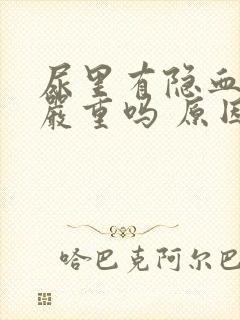 尿里有隐血
嚴重吗 原因
哈巴克阿尔巴